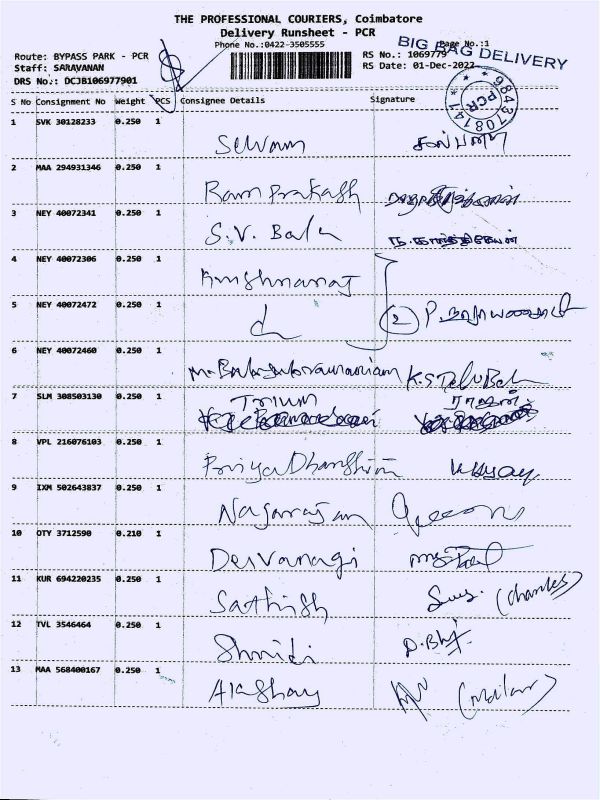 THE PROFESSIONAL COURIERS, Coimbatore
Delivery Runsheet - PCR
Phone No.:0422-3505555
Page No.:1
BIG BAG DELIVERY
Route: BYPASS PARK - PCR
RS No.: 1069779
Staff: SARAVANAN
RS Date: 01-Dec-2022
DRS No.: DCJB106977901
PCR
S No Consignment No Weight PCS Consignee Details Signature
1 SVK 30128233 0.250 1
Selvam
2 MAA 294931346 0.250 1
Ram Prakash
3 NEY 40072341 0.250 1
S.V. Bala
4 NEY 40072306 0.250 1
Krishnaraj
5 NEY 40072472 0.250 1
2
6 NEY 40072460 0.250 1
M. Balasubramaniam
7 SLM 308503130 0.250 1
Trium
8 VPL 216076103 0.250 1
Priya Dharshini
9 IXM 502643837 0.250 1
Nagarajan
10 OTY 3712590 0.210 1
Deivanagi
11 KUR 694220235 0.250 1
Sathish (Charles)
12 TVL 3546464 0.250 1
Shruti
13 MAA 568400167 0.250 1
Akashay